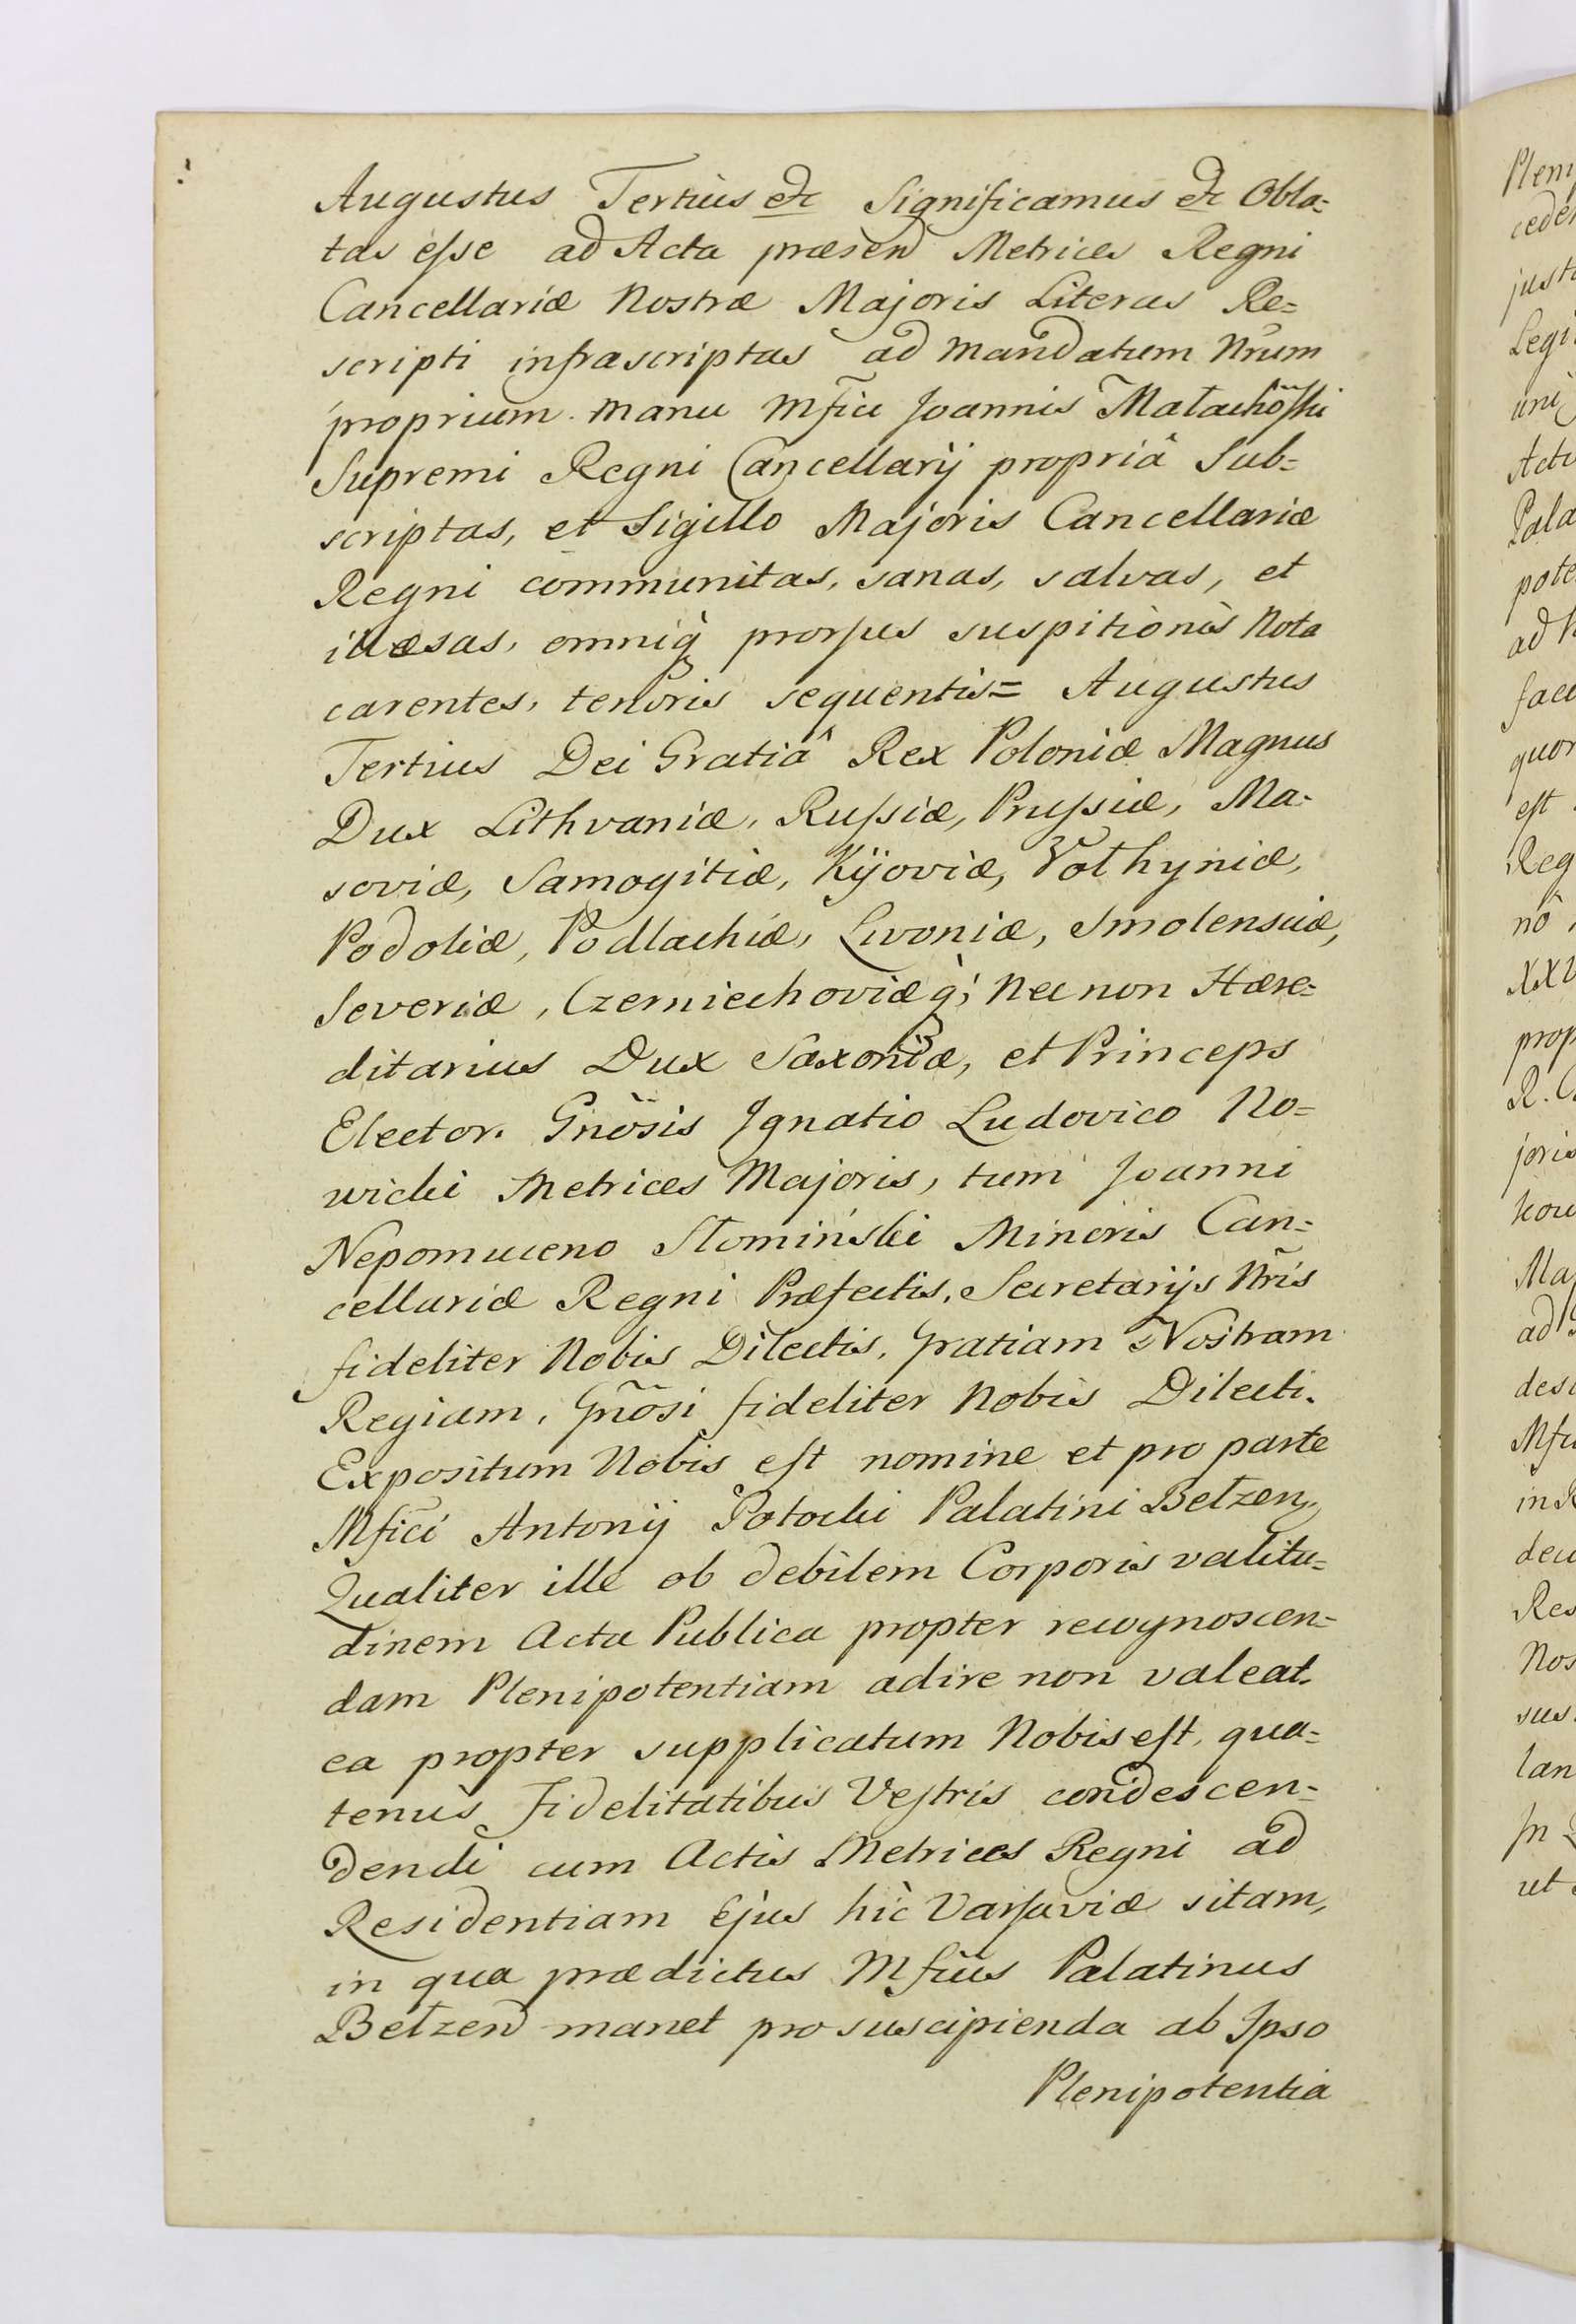 Augustus Tertius etc Significamus etc Obla=
tas esse ad Acta præsen Metrices Regni
Cancellariæ Nostræ Majoris Literas Re=
scripti infrascriptas ad Mandatum Nrũm
proprium manu Mfĩci Joannis Małachõski
Supremi Regni Cancellarij propriâ Sub=
scriptas, et Sigillo Majoris Cancellariæ
Regni communitas, sanas, salvas, et
illæsas, omniq̀ prorsus suspitionis Nota
carentes, tenoris sequentis= Augustus
Tertius Dei Gratiâ Rex Poloniæ Magnus
Dux Lithvaniæ, Russiæ, Prussiæ, Ma=
soviæ, Samogitiæ, Kijoviæ, Volhyniæ,
Podoliæ, Podlachiæ, Livoniæ, Smolensciæ,
Severiæ, Czerniechoviæq̀; Nec non Hære=
ditarius Dux Saxoniæ, et Princeps
Elector. Gnõsis Ignatio Ludovico No=
wicki Metrices Majoris, tum Joanni
Nepomuceno Słomiński Minoris Can=
cellariæ Regni Præfectis, Secretarijs Nrĩs
fideliter Nobis Dilectis, Gratiam Nostram
Regiam, Gnõsi fideliter Nobis Dilecti.
Expositum Nobis est nomine et pro parte
Mfĩci Antonij Potocki Palatini Bełzen,
Qualiter ille ob debilem Corporis valitu=
dinem Acta Publica propter recognoscen=
dam Plenipotentiam adire non valeat.
ea propter supplicatum Nobis est, qua=
tenus Fidelitatibus Vestris condescen=
dendi cum Actis Metrices Regni ad
Residentiam Ejus hic Varsaviæ sitam,
in qua prædictus Mfĩcus Palatinus
Bełzen manet pro suscipienda ab Ipso
Plenipotentia